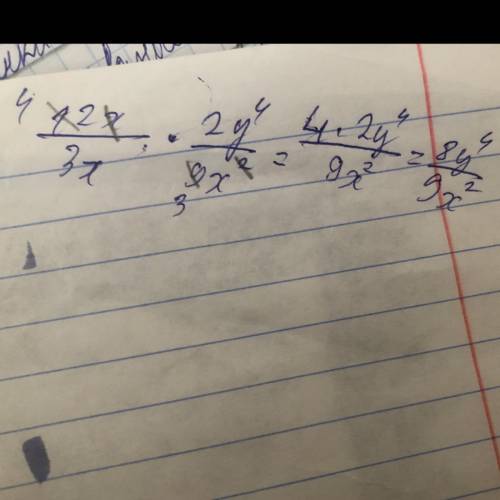 4 12x/3x · 2y⁴/9x² = 4·2y⁴/9x² = 8y⁴/9x²
3